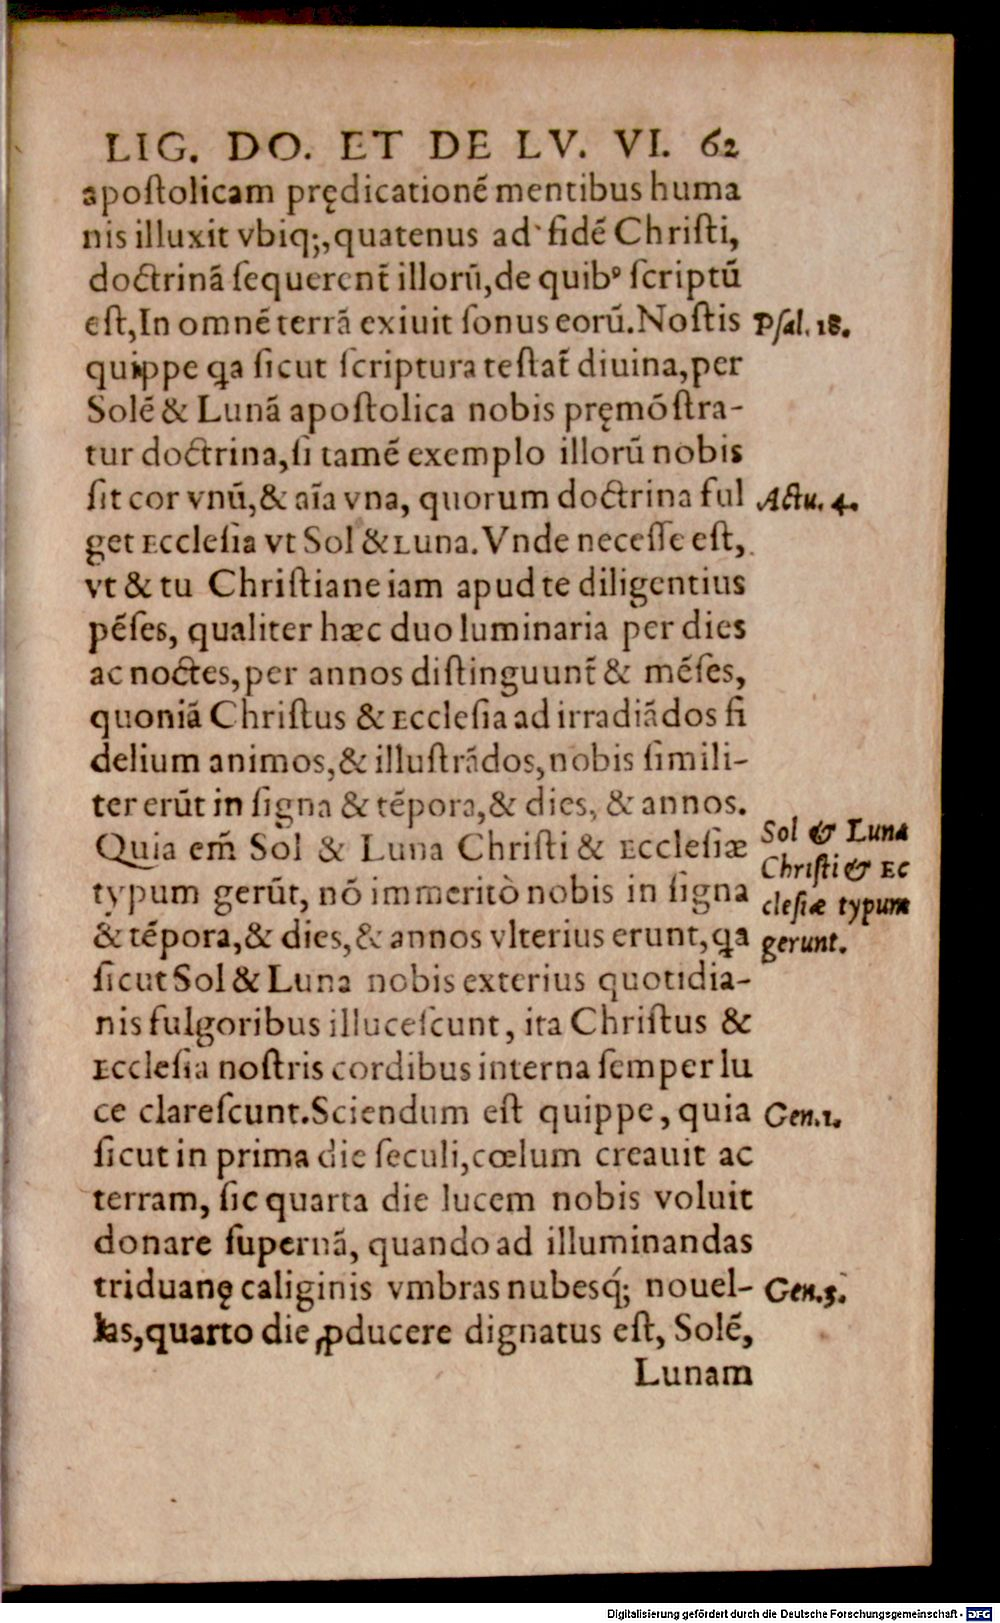 LIG. DO. ET DE LV. VI. 62
apoſtolicam prędicationē mentibus huma
nis illuxit vbiq;, quatenus ad fidē Chriſti,
doctrinā ſequerent̃ illorū, de quibꝰ ſcriptū
eſt, In omnē terrā exiuit ſonus eorū. Noſtis
Pſal. 18.
quippe qa ſicut ſcriptura teſtat̃ diuina, per
Solē & Lunā apoſtolica nobis pręmōſtra-
tur doctrina, ſi tamē exemplo illorū nobis
ſit cor vnū, & aīa vna, quorum doctrina ful
Actu. 4.
get Eccleſia vt Sol & Luna. Vnde neceſſe eſt,
vt & tu Chriſtiane iam apud te diligentius
pēſes, qualiter hæc duo luminaria per dies
ac noctes, per annos diſtinguunt̃ & mēſes,
quoniā Chriſtus & Eccleſia ad irradiādos fi
delium animos, & illuſtrādos, nobis ſimili-
ter erūt in ſigna & tēpora, & dies, & annos.
Quia em̃ Sol & Luna Chriſti & Eccleſiæ
typum gerūt, nō immeritò nobis in ſigna
& tēpora, & dies, & annos vlterius erunt, qa
Sol & Luna
Chriſti & Ec
cleſiæ typum
gerunt.
ſicut Sol & Luna nobis exterius quotidia-
nis fulgoribus illuceſcunt, ita Chriſtus &
Eccleſia noſtris cordibus interna ſemper lu
ce clareſcunt. Sciendum eſt quippe, quia
Gen. 1.
ſicut in prima die ſeculi, cœlum creauit ac
terram, ſic quarta die lucem nobis voluit
donare ſupernā, quando ad illuminandas
triduanę caliginis vmbras nubesq́; nouel-
Gen. 5.
las, quarto die ꝓducere dignatus eſt, Solē,
Lunam
Digitalisierung gefördert durch die Deutsche Forschungsgemeinschaft - DFG